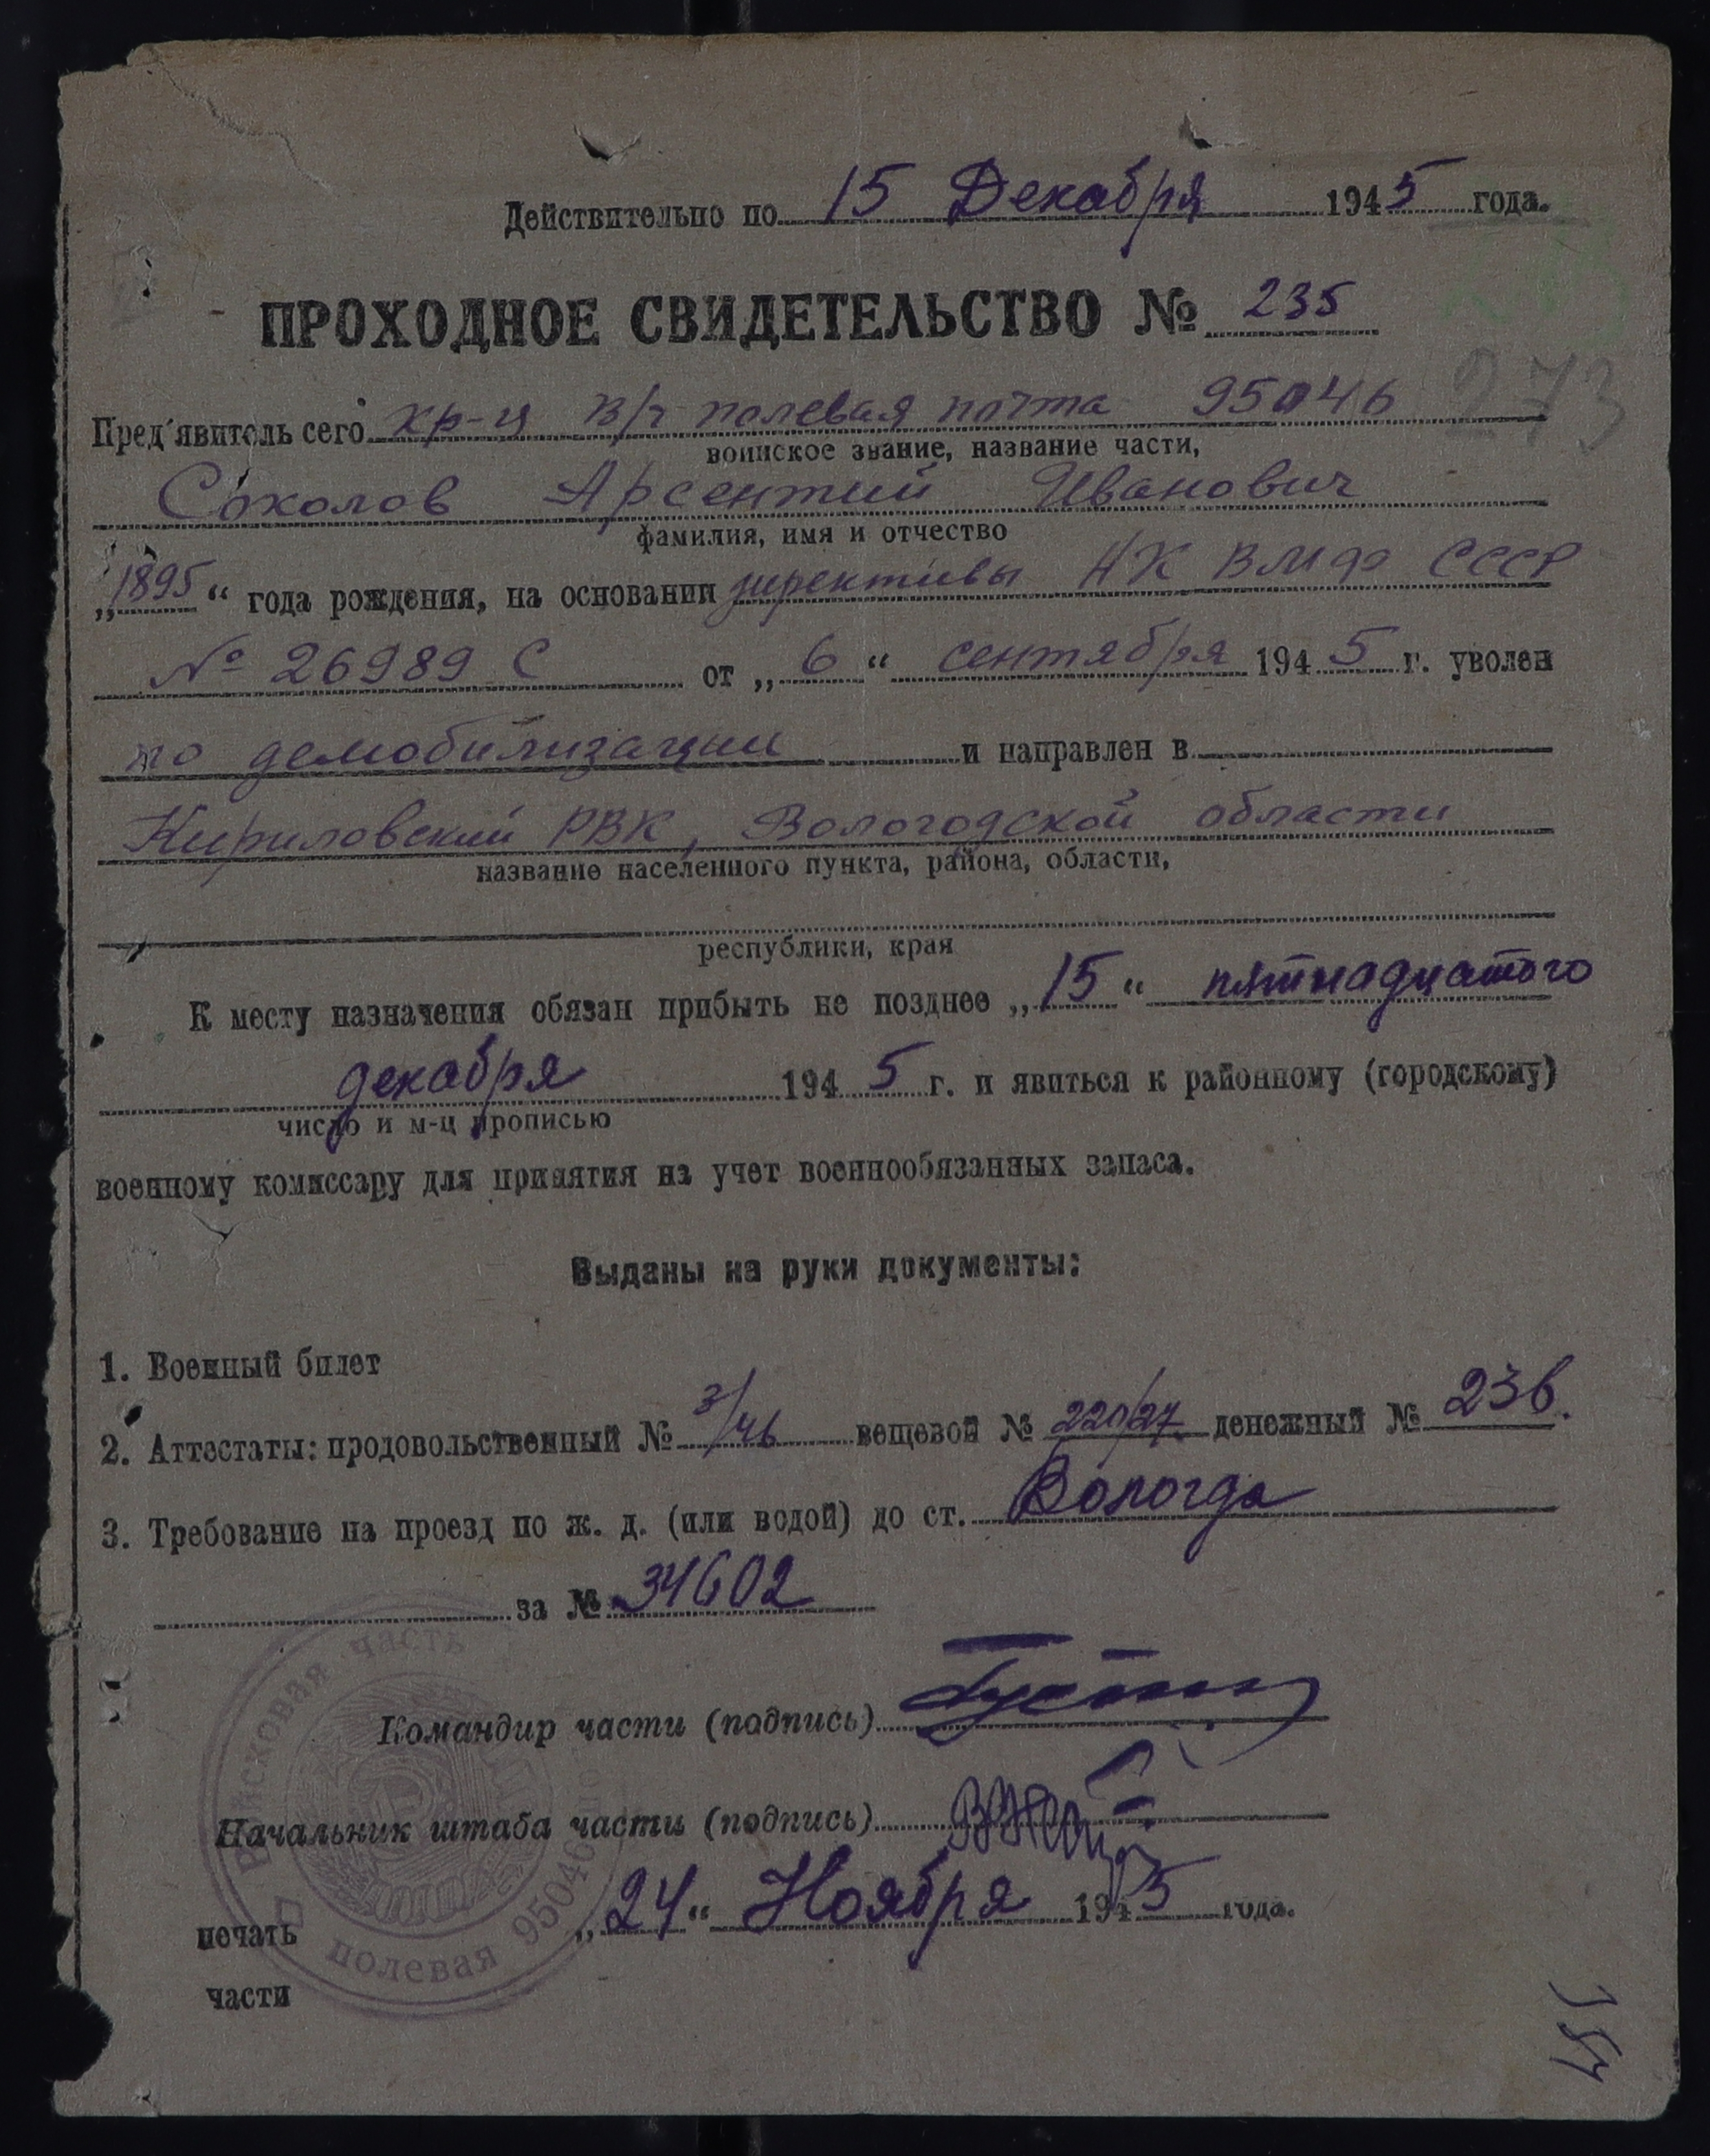 Действительно по 15 Декабря 1945 года.
ПРОХОДНОЕ СВИДЕТЕЛЬСТВО № 235
273
Пред'явитель сего кр-ц в/ч полевая почта 95046
воинское звание, название части,
Соколов Арсентий Иванович
фамилия, имя и отчество
„1895“ года рождения, на основании директивы НК ВМФ СССР
№ 26989 С от „6“ сентября 1945 г. уволен
по демобилизации и направлен в
Кириловский РВК, Вологодской области
название населенного пункта, района, области,
республики, края
К месту назначения обязан прибыть не позднее „15“ пятнадцатого
декабря 1945 г. и явиться к районному (городскому)
число и м-ц прописью
военному комиссару для принятия на учет военнообязанных запаса.
Выданы на руки документы:
1. Военный билет
2. Аттестаты: продовольственный № 3/46 вещевой № 220/27 денежный № 236.
3. Требование на проезд по ж. д. (или водой) до ст. Вологда
за № 34602
Командир части (подпись)
Начальник штаба части (подпись)
„24“ Ноября 1945 года.
печать
части
Войсковая часть
полевая 95046